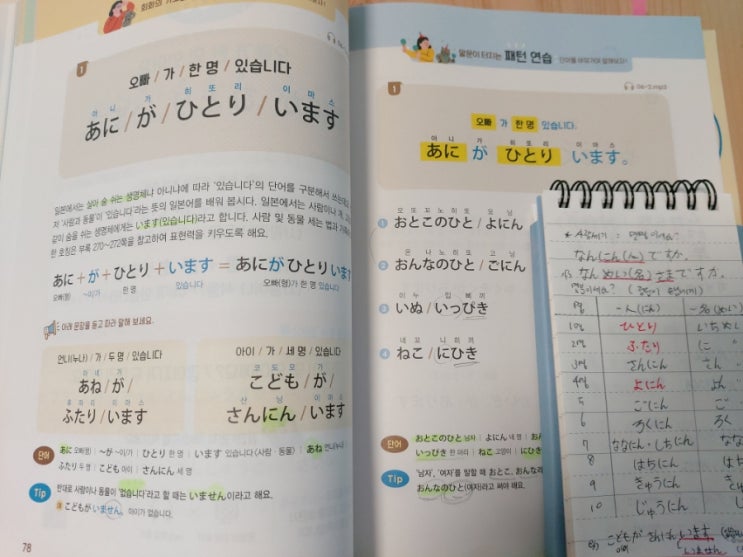 1
오빠 / 가 / 한 명 / 있습니다
아니 가 히또리 이마스
あに / が / ひとり / います
일본에서는 살아 숨 쉬는 생명체냐 아니냐에 따라 '있습니다'의 단어를 구분해서
저 '사람과 동물이 있습니다'라는 뜻의 일본어를 배워 봅시다. 일본에서는 사람이나
같이 숨을 쉬는 생명체에게는 います(있습니다)라고 합니다. 사람 및 동물 세는 법과
한 호칭은 부록 270~272쪽을 참고하여 표현력을 키우도록 해요.
あに + が + ひとり + います = あにが ひとり
오빠(형) ~이/가 한 명 있습니다 오빠(형)가 한 명 있습니다
아래 문장을 듣고 따라 말해 보세요.
언니(누나) / 가 / 두 명 / 있습니다
아네 가
あね / が /
후따리 이마스
ふたり / います
아이 / 가 / 세 명 / 있습니다
코도모 가
こども / が /
산닝 이마스
さんにん / います
단어
あに 오빠(형) | ~が ~이/가 | ひとり 한 명 | います 있습니다(사람·동물) | あね 언니/누나
ふたり 두 명 | こども 아이 | さんにん 세 명
Tip
반대로 사람이나 동물이 '없습니다'라고 할 때는 いません이라고 해요.
こどもが いません。 아이가 없습니다.
78
말문이 터지는 패턴 연습 단어를 바꾸어 말해보자!
06-2.mp3
1
오빠 가 한 명 있습니다.
아니 가 히또리 이마스
あに が ひとり います。
오또꼬노히또 요닝
1 おとこのひと / よにん
온나노히또 고닝
2 おんなのひと / ごにん
이누 입삐끼
3 いぬ / いっぴき
네꼬 니히끼
4 ねこ / にひき
단어
おとこのひと 남자 | よにん 네 명 |
いっぴき 한 마리 | ねこ 고양이 | にひき
Tip
'남자', '여자'를 말할 때 おとこ,
おんなのひと(여자)라고 써야 해요.
なんにん(人)ですか。
なん めい(名)さまですか。
一人(にん) 一名(めい)
1명 ひとり いちめい
2명 ふたり に
3명 さんにん さん
4명 よにん よん
5 ごにん ご
6 ろくにん ろく
7 ななにん・しちにん なな
8 はちにん はち
9 きゅうにん きゅう
10 じゅうにん じゅう
います
いません